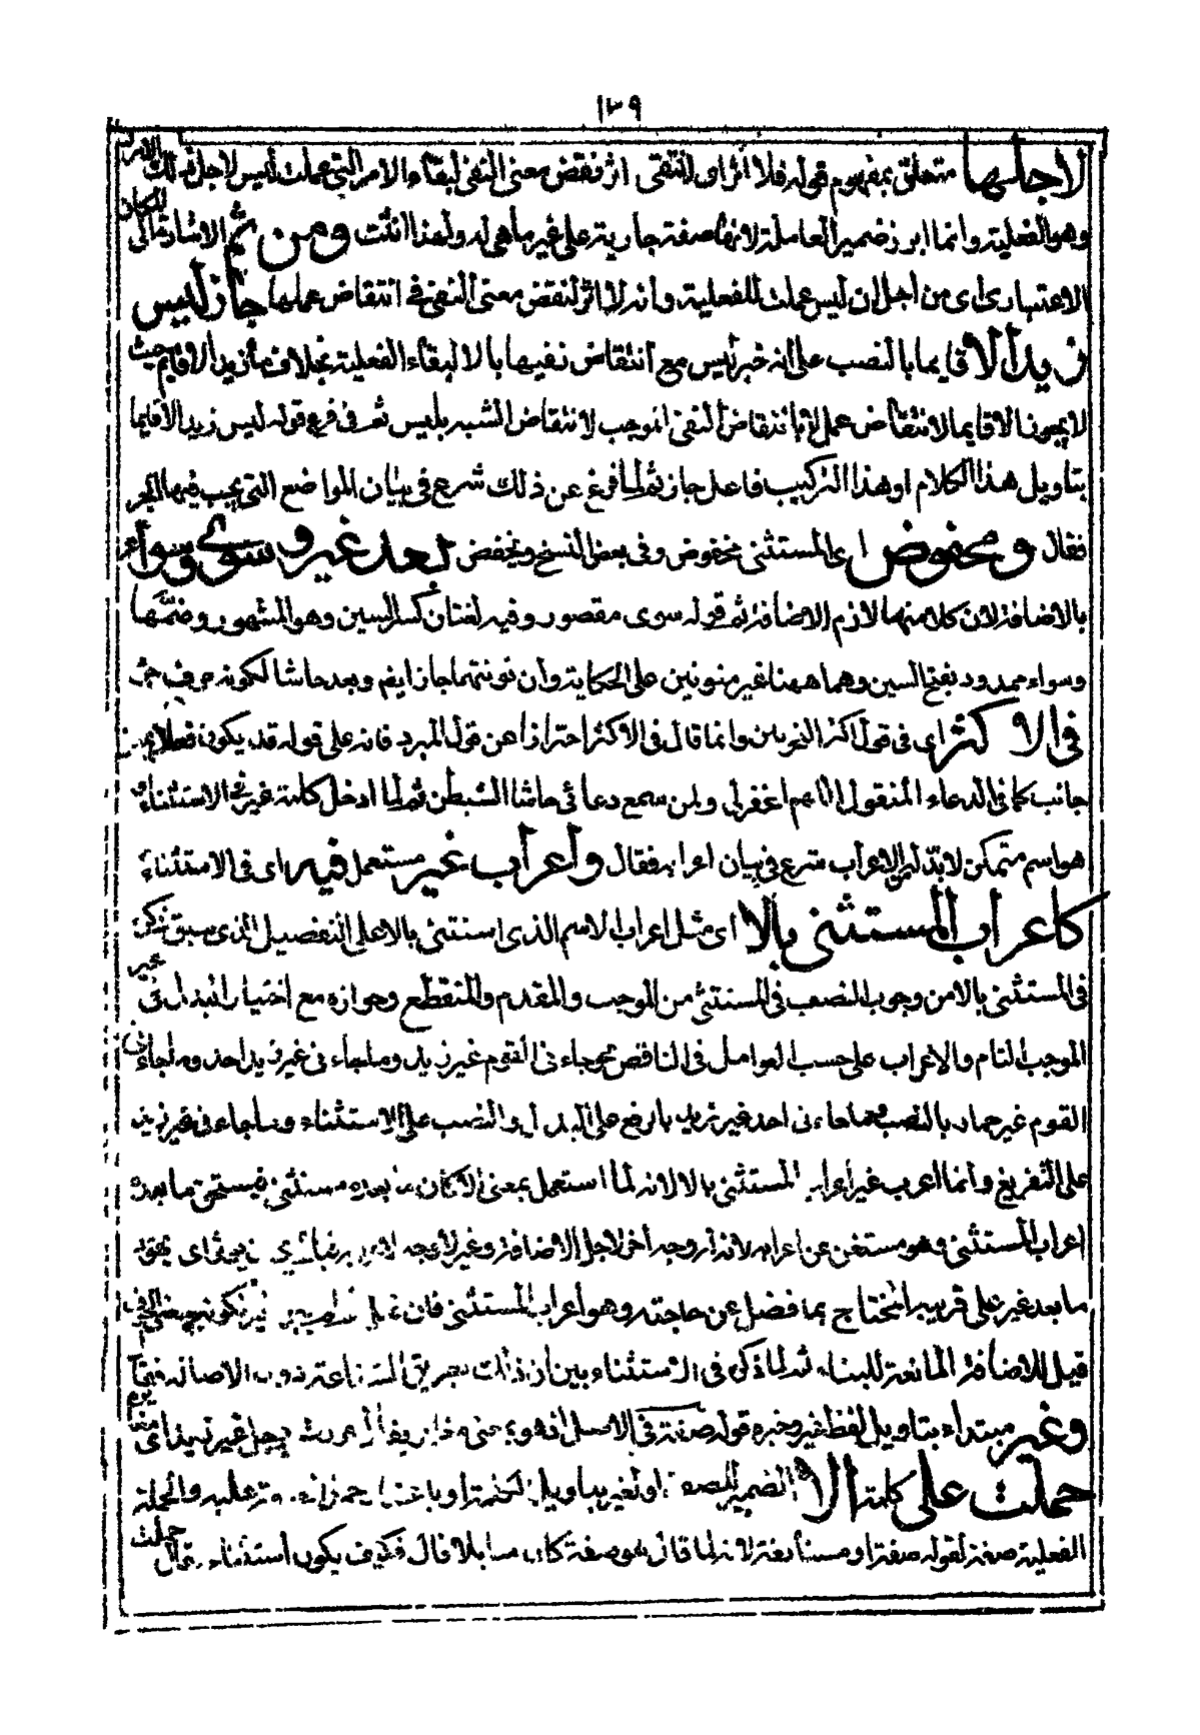 ١٣٩
لاجلها متعلق بمفهوم قوله فلا اثر اى لا تنتفى اثر نقض معنى النفى لبقاء الامر التى عملت ليس لاجل ذلك الامر
وهو الفعلية وانما ابرز ضمير العاملة لانها صفة جارية على غير ما هى له ولهذا انثت ومن ثم الاشارة الى المكان
الاعتبارى اى من اجل ان ليس عملت للفعلية وانه لا اثر لنقض معنى النفى فى انتقاض عملها جاز ليس
زيد الا قايما بالنصب على انه خبر ليس مع انتقاض نفيها بالا لبقاء الفعلية بخلاف ما زيد الا قايم حيث
لا يجوز الا قايما لانتقاض عمل ما بانتقاض النفى الموجب لانتقاض الشبه بليس ثم فى فرع قوله ليس زيد الا قايما
بتاويل هذا الكلام او هذا التركيب فاعل جاز ثم لما فرغ عن ذلك شرع فى بيان المواضع التى يجب فيها الجر
فقال ومخفوض اى المستثنى مخفوض وفى بعض النسخ ويخفض بعد غير وسوى وسواء
بالاضافة لان كلا منها لازم الاضافة ثم قوله سوى مقصور وفيه لغتان كسر السين وهو المشهور وضمها
وسواء ممدود بفتح السين وهما ههنا غير منونين على الحكاية وان نونتهما جاز ايضا وبعد حاشا لكونه حرف جر
فى الاكثر اى فى قول اكثر النحويين وانما قال فى الاكثر احترازا عن قول المبرد فانه على قوله قد يكون فعلا بمعنى
جانب كما فى الدعاء المنقول اللهم اغفر لى ولمن سمع دعائى حاشا الشيطن ثم لما ادخل كلمة غير فى الاستثناء و
هو اسم متمكن لا بد له من الاعراب شرع فى بيان اعرابه فقال واعراب غير مستعمل فيه اى فى الاستثناء
كاعراب المستثنى بالا اى مثل اعراب الاسم الذى استثنى بالا على التفصيل الذى سبق ذكره
فى المستثنى بالا من وجوب النصب فى المستثنى من الموجب والمقدم والمنقطع وجوازه مع اختيار البدل فى غير
الموجب التام والاعراب على حسب العوامل فى الناقص نحو جاءنى القوم غير زيد وما جاءنى غير زيد احد وما جاءنى
القوم غير حمار بالنصب وما جاءنى احد غير زيد بالرفع على البدل والنصب على الاستثناء وما جاءنى غير زيد
على التفريغ وانما اعرب غير اعراب المستثنى بالا لانه لما استعمل بمعنى الا كان ما بعده مستثنى فيستحق ما بعده
اعراب المستثنى وهو مستغن عن اعرابه لانه انر وجه اخر لاجل الاضافة وغير لا وجه
ما بعد غير على قريبه المحتاج بما فضل عن حاجته وهو اعراب المستثنى فان قيل
قيل للاضافة المانعة للبناء ثم لما ذكر فى الاستثناء بين ان ذلك بطريق
وغير مبتداء بتاويل لفظ غير وخبره قوله صفة فى الاصل اذ هو برجل غير زيد اى
حملت على كلمة الا الضمير او لغير بتاويل الكلمة او باعتبار عليه والجملة
الفعلية صفة لقوله صفة او مستأنفة لانه لما قال هو صفة كان سائلا قال فكيف يكون استثناء فقال حملت